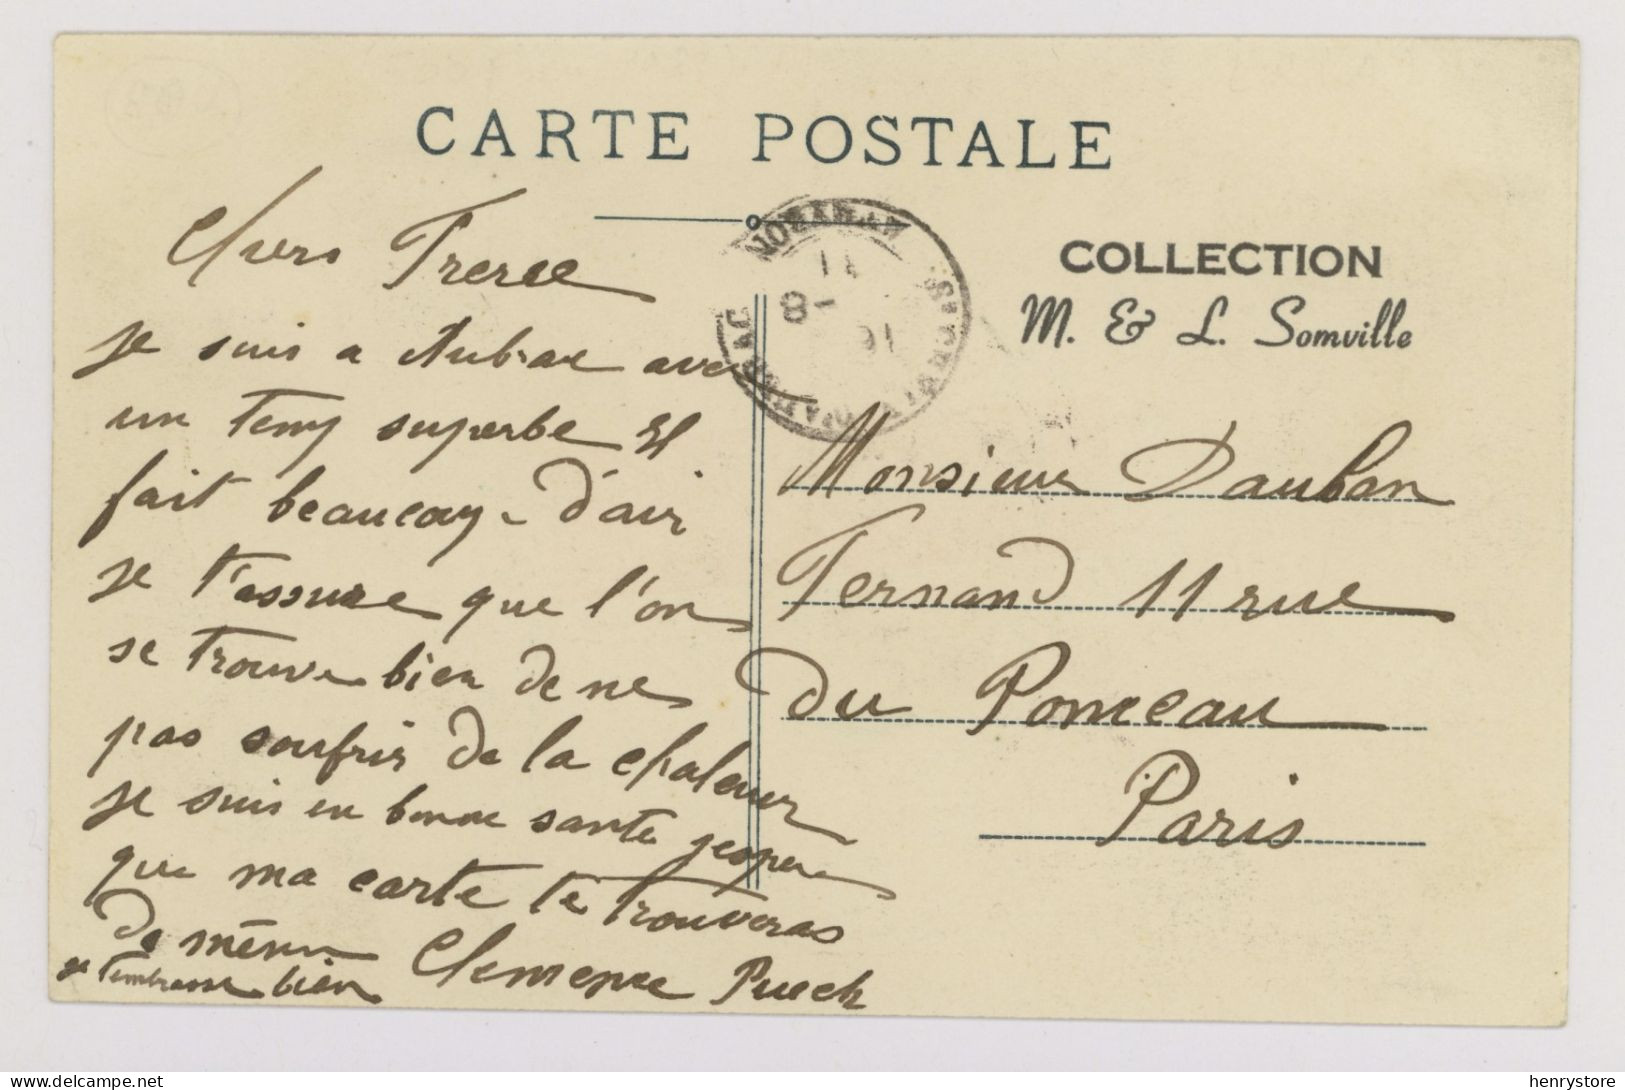 CARTE POSTALE
COLLECTION
M. & L. Somville
Chers Frere
je suis a Aubrac avec
un Temp superbe Il
fait beaucoup d'air
je t'assure que l'on
se trouve bien de ne
pas soufrir de la chaleur
je suis en bonne sante jesper
que ma carte te trouveras
De même Clemence Puech
je t'embrasse bien
MORBIHAN
11
8
16
Monsieur Dauban
Fernand 11 rue
du Ponceau
Paris
henrystore